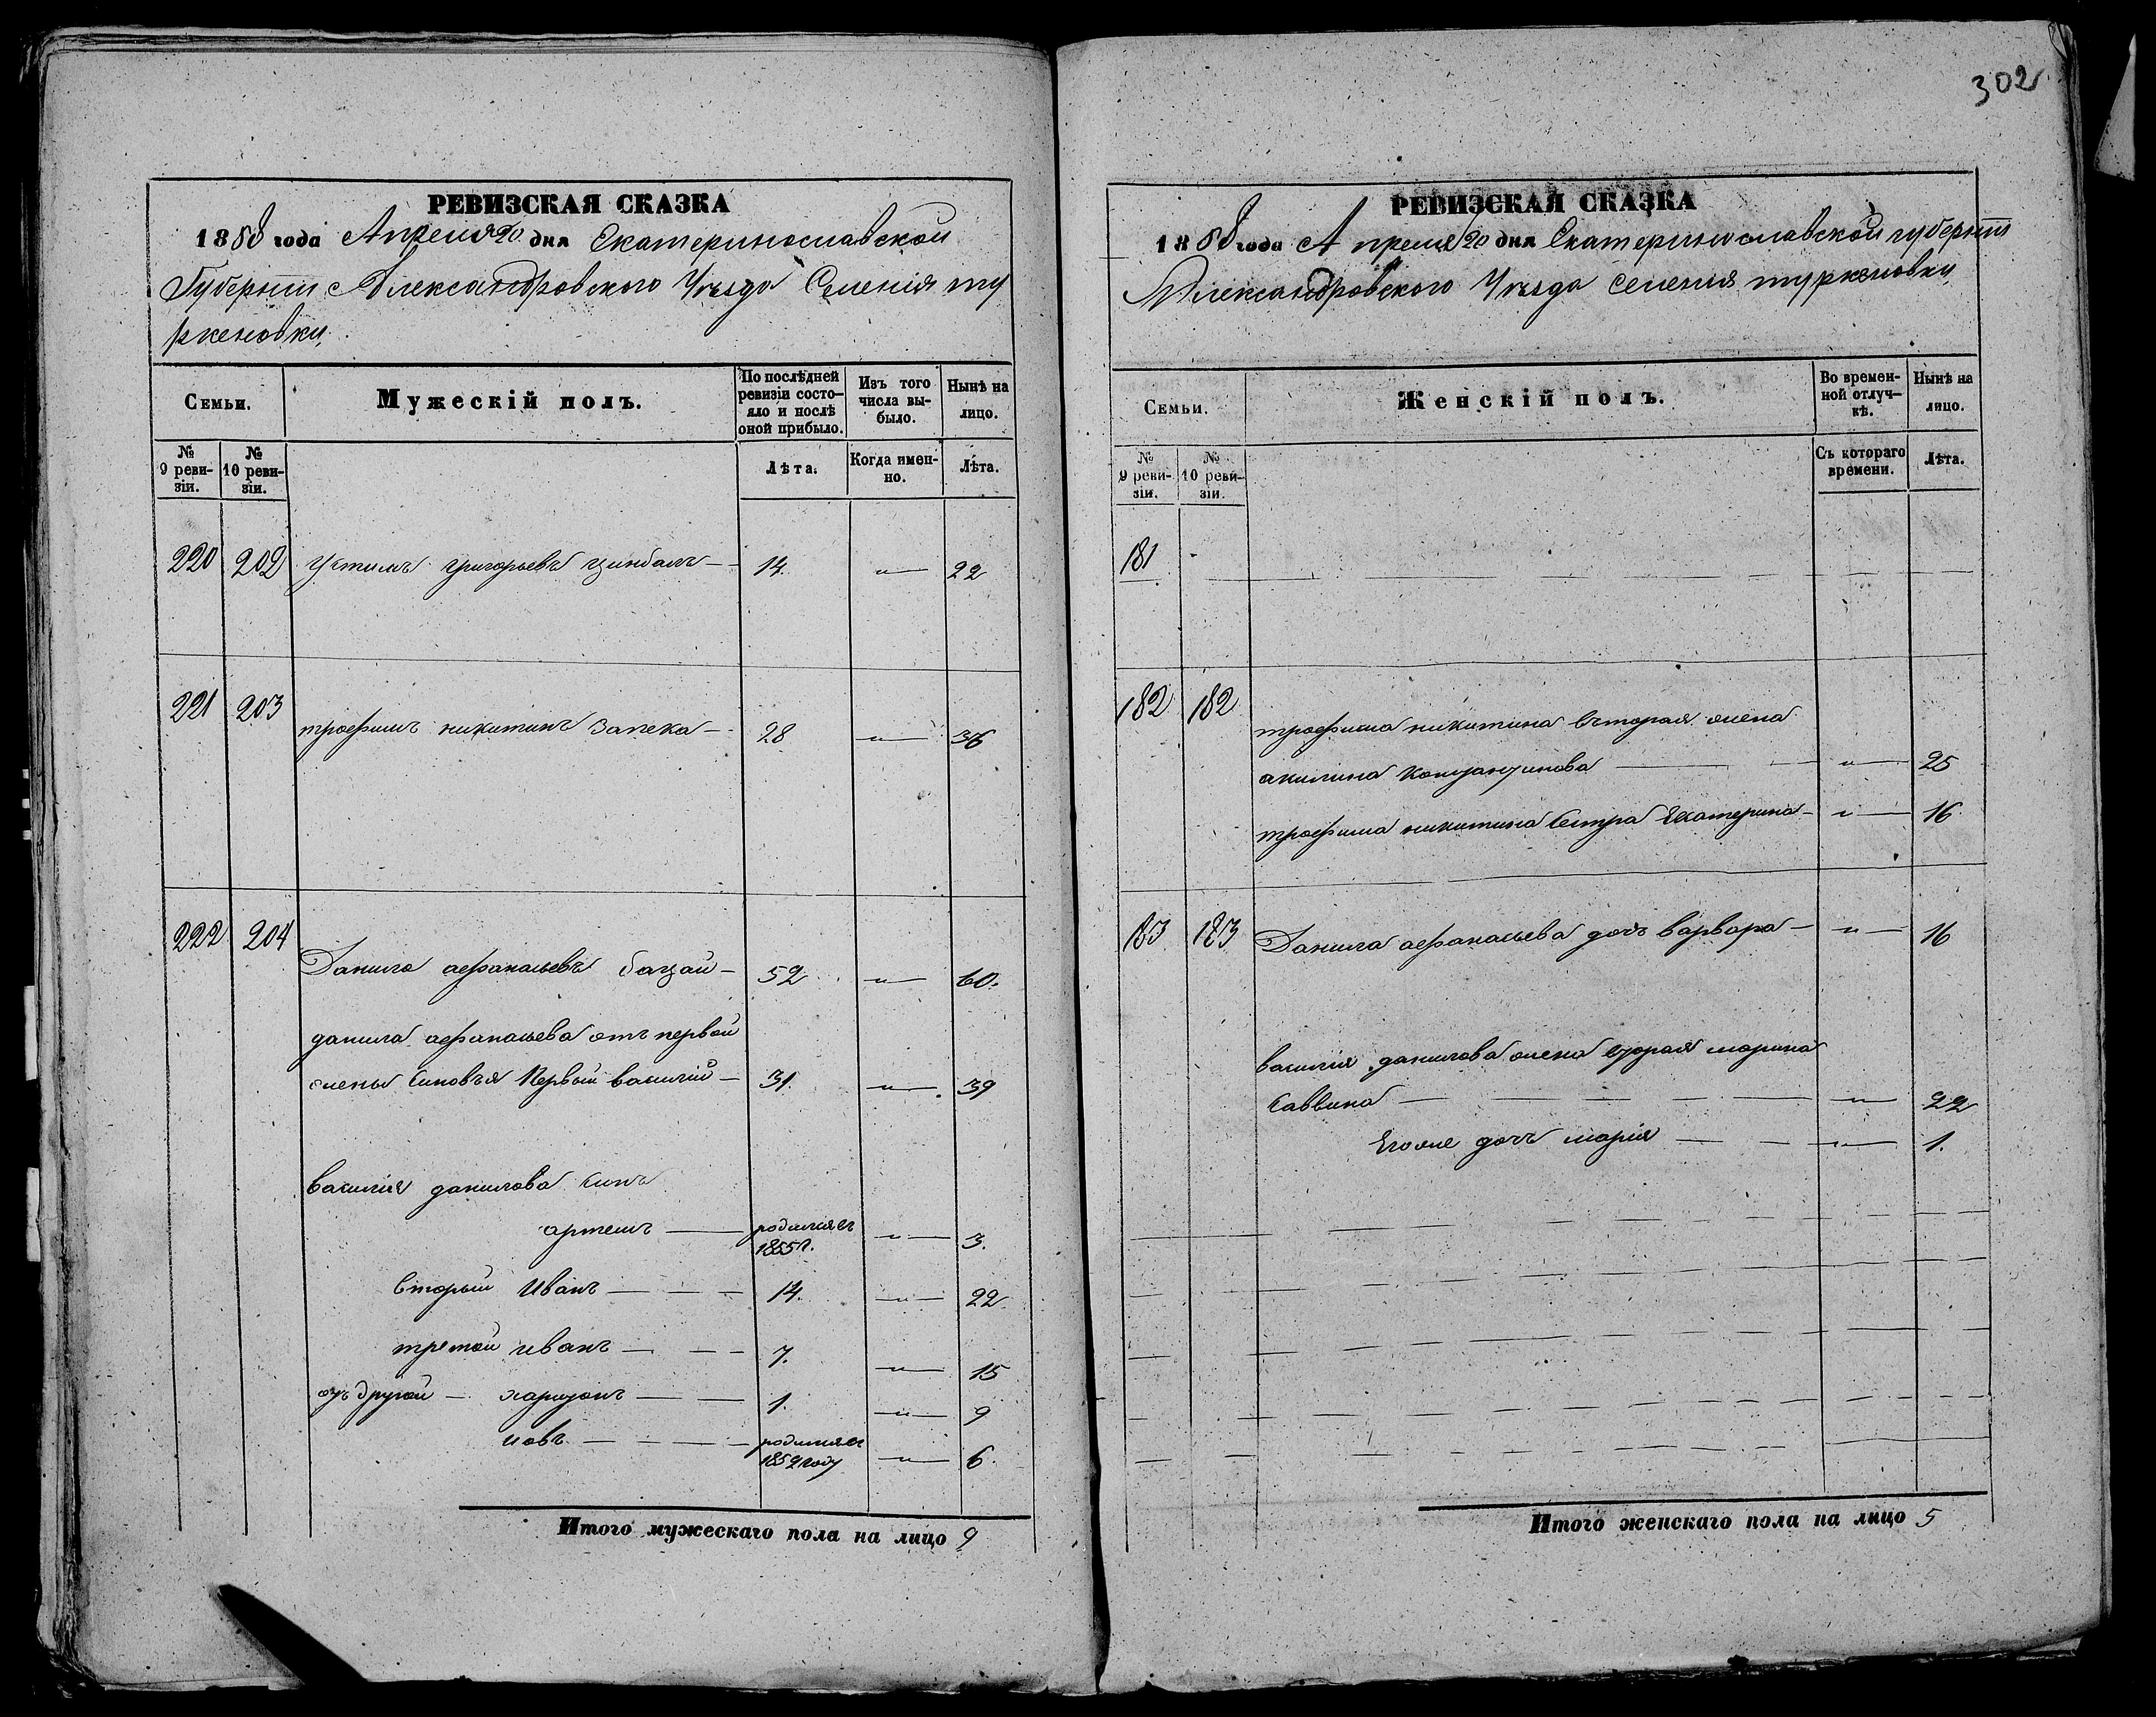 302
РЕВИЗСКАЯ СКАЗКА
1858 года Апреля 20 дня Екатеринославской
Губернiи Александровского Уѣзда Селенiя ту
ркеновки,
Семьи.
Мужескiй полъ.
По послѣдней ревизiи состояло и послѣ оной прибыло.
Изъ того числа выбыло.
Нынѣ на лицо.
№ 9 ревизiи.
№ 10 ревизiи.
Лѣта.
Когда именно.
Лѣта.
220 202 Устимъ григорьевъ цимбалъ — 14. „ — 22
221 203 трофимъ никитинъ Запека — 28 „ — 36
222 204
Данило афанасьевъ бацай — 52 „ — 60.
данила афанасьева отъ первой
жены синовья Первый василiй — 31. „ — 39
василiя данилова синъ
артемъ — родился въ 1855 г. „ — 3.
вторый Иванъ — 14. „ — 22
третой иванъ — 7. „ — 15
отъ другой — харитонъ — 1. „ — 9
иовъ — родился въ 1852 году „ — 6.
Итого мужескаго пола на лицо 9
РЕВИЗСКАЯ СКАЗКА
1858 года Апреля 20 дня Екатеринославской губернiи
Александровского Уѣзда селенiя туркеновки,
Семьи.
Женскiй полъ.
Во временной отлучкѣ.
Нынѣ на лицо.
№ 9 ревизiи.
№ 10 ревизiи.
Съ котораго времени.
Лѣта.
181
182 182 трофима никитина вторая жена
акилина константинова — „ — 25
трофима никитина сестра Екатерина — „ — 16
183 183 Данила афанасьева дочь варвара — „ — 16
василiя данилова жена вторая марина
саввина — „ — 22
Егоже дочъ марiя — „ — 1.
Итого женскаго пола на лицо 5